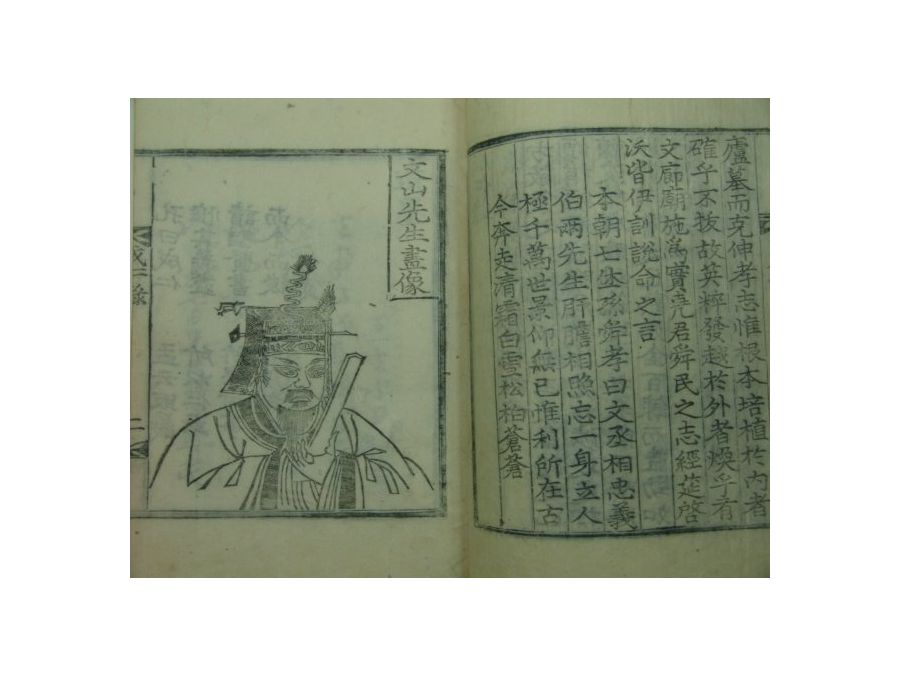 廬墓而克伸孝志惟根本培植於內者
確乎不拔故英粹發越於外者煥乎有
文廊廟施爲實堯君舜民之志經筵啓
沃皆伊訓說命之言
本朝七世孫舜孝曰文丞相忠義
伯兩先生肝膽相照忘一身立人
極千萬世景仰無已惟利所在古
今奔走淸霜白雪松柏蒼蒼
文山先生畫像
二